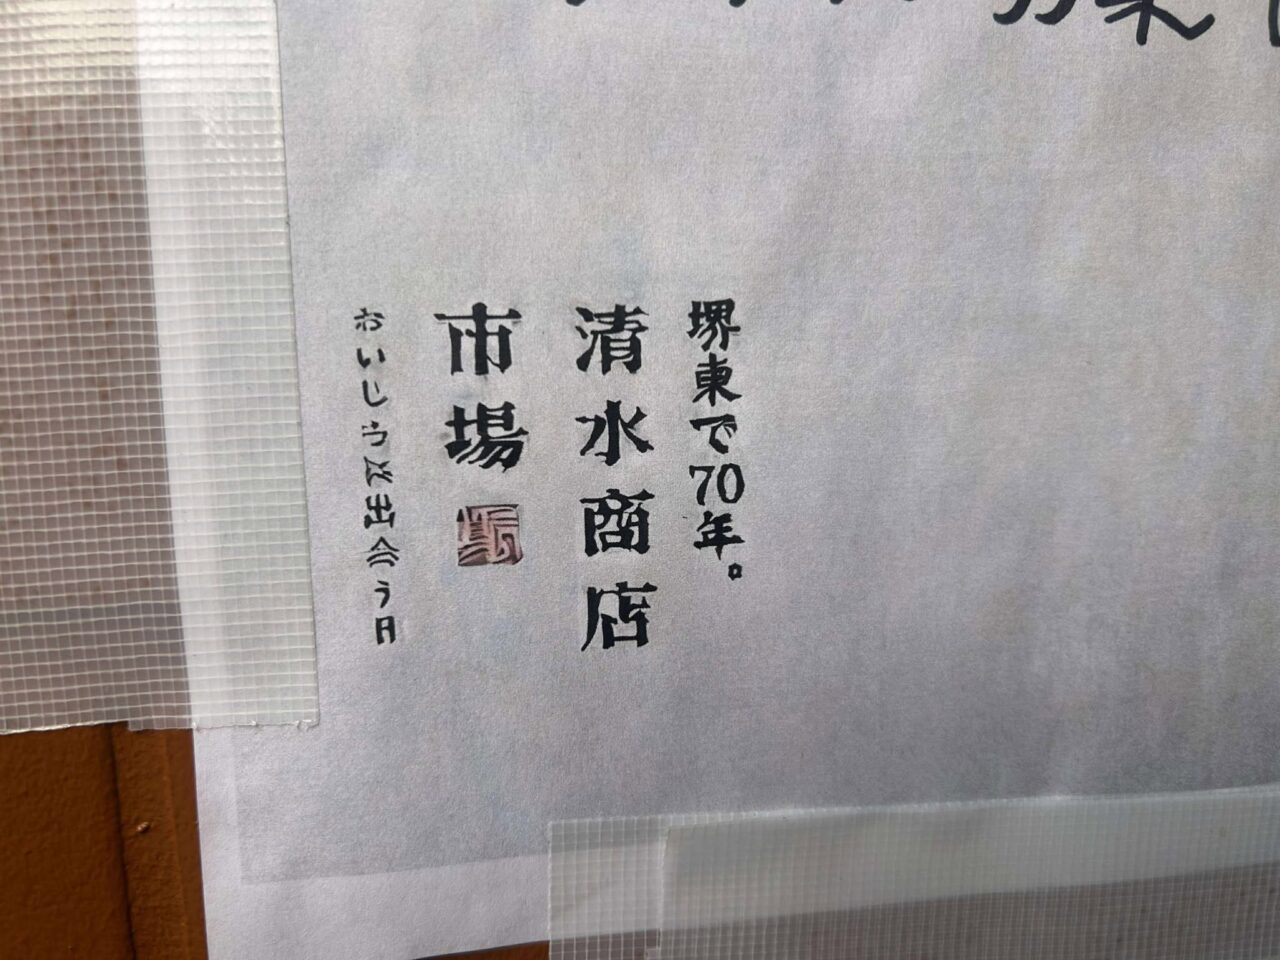 堺東で70年。
清水商店
市場
おいしうに出会う日